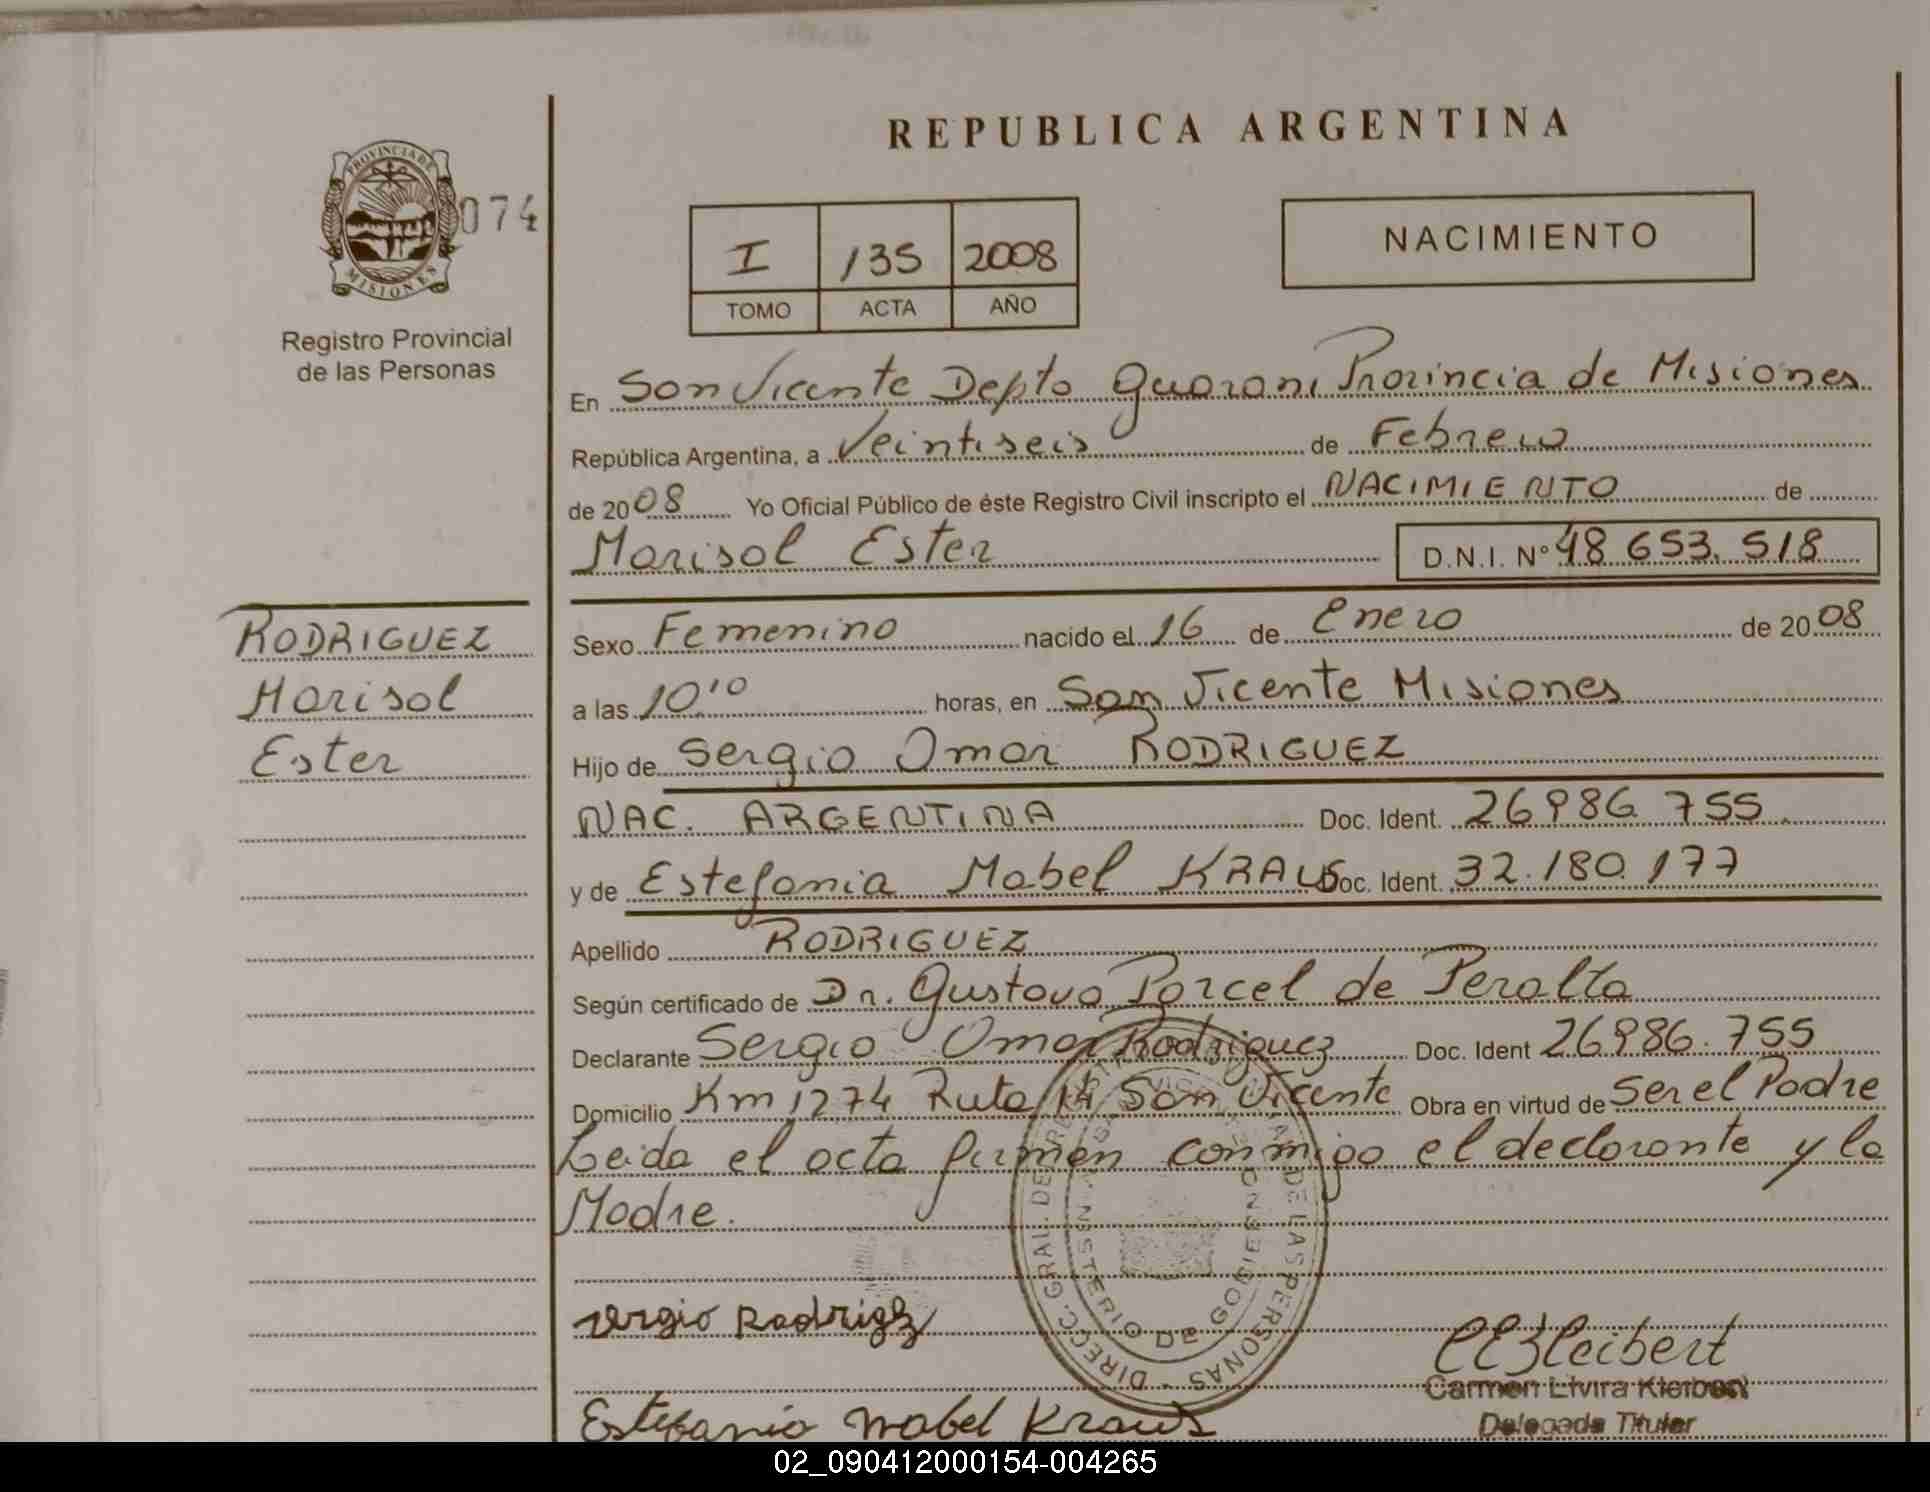 REPUBLICA ARGENTINA
PROVINCIA DE
MISIONES
074
Registro Provincial
de las Personas
I 135 2008
TOMO ACTA AÑO
NACIMIENTO
En San Vicente Depto Guarani Provincia de Misiones
República Argentina, a Veintiseis de Febrero
de 2008 Yo Oficial Público de éste Registro Civil inscripto el NACIMIENTO de
Marisol Ester D.N.I. Nº 48 653. 518
RODRIGUEZ
Marisol
Ester
Sexo Femenino nacido el 16 de Enero de 2008
a las 10'10 horas, en San Vicente Misiones
Hijo de Sergio Omar RODRIGUEZ
NAC. ARGENTINA Doc. Ident. 26986 755
y de Estefania Mabel KRAUS Doc. Ident. 32.180.177
Apellido RODRIGUEZ
Según certificado de Dr. Gustavo Porcel de Peralta
Declarante Sergio Omar Rodriguez Doc. Ident 26986.755
Domicilio Km 1274 Ruta 14 San Vicente Obra en virtud de Ser el Padre
Leida el acta firman conmigo el declarante y la
Madre.
DIRECC. GRAL. DE DE LAS PERSONAS
MINISTERIO DE GOBIERNO
Sergio Rodrigz
CEKleibert
Carmen Elvira Kleibert
Estefania Mabel Kraus
Delegada Titular
02_090412000154-004265